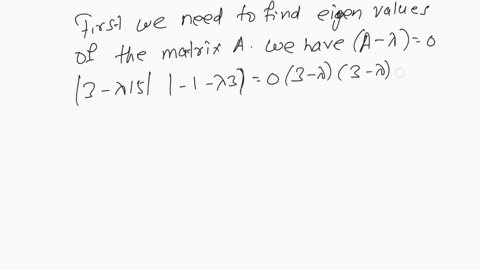 First we need to find eigen values
of the matrix A. we have (A-λ)=0
|3-λ15| |-1-λ3| = 0 (3-λ) (3-λ)